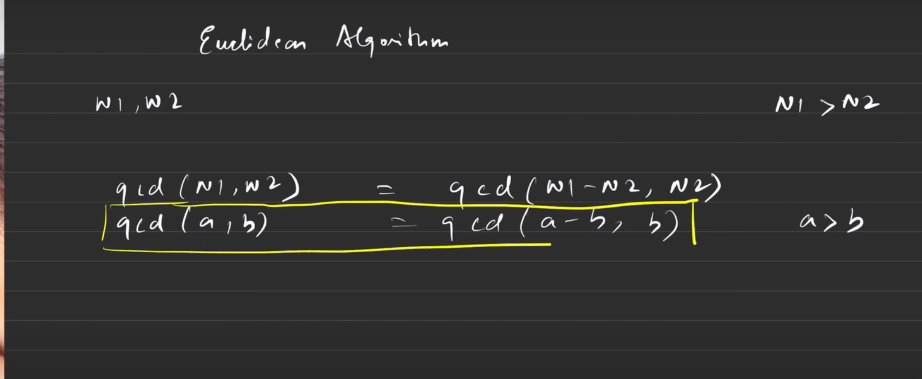 Euclidean Algorithm
N1, N2 N1 > N2
gcd (N1, N2) = gcd (N1-N2, N2)
gcd (a, b) = gcd (a-b, b) a>b